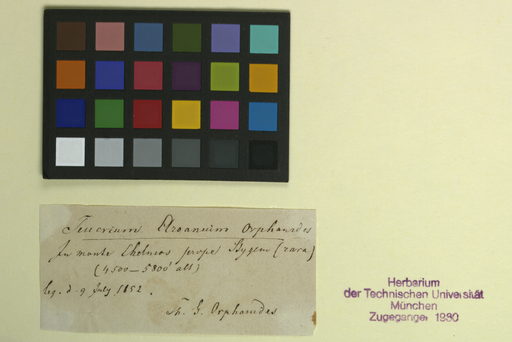 Teucrium Aroanium Orphanides
In monte Chelmos prope Stygem (rara)
(4500—5800' alt)
leg. d. 9 July 1852.
Th. G. Orphanides
Herbarium
der Technischen Universität
München
Zugegangen 1980